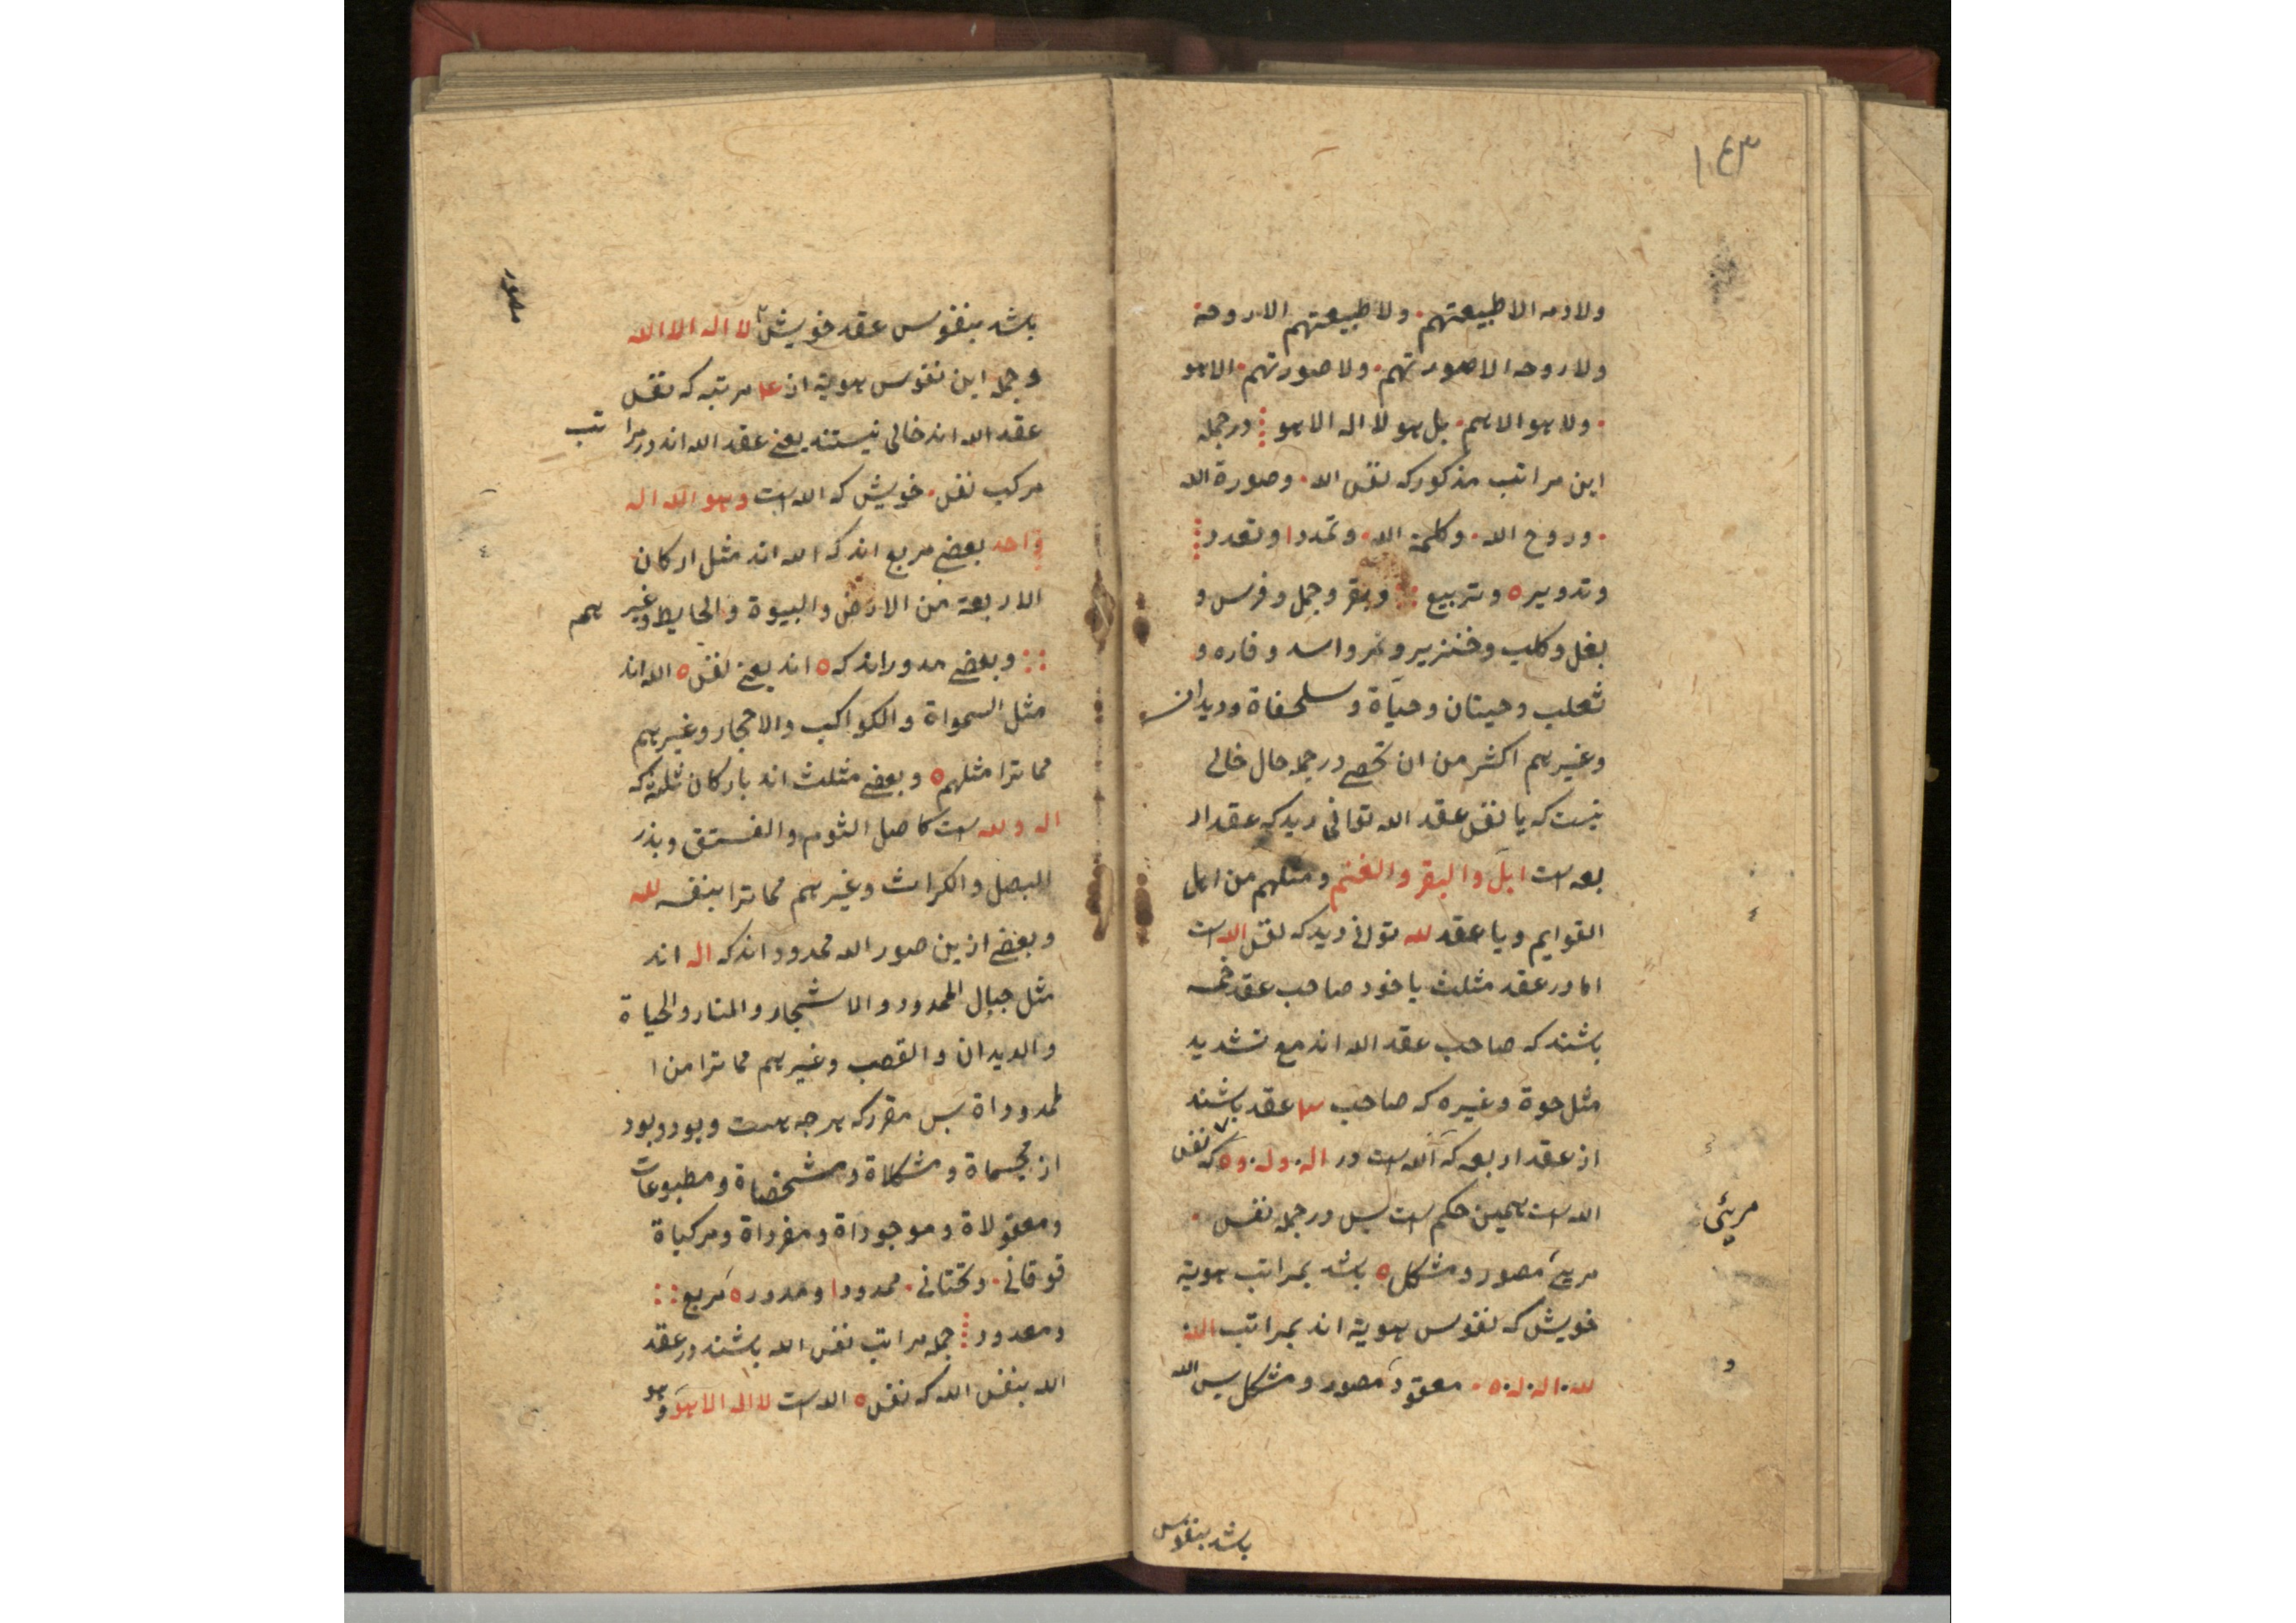 ١٤٣
ولا دمه الا طبیعتهم. ولا طبیعتهم الا روحه
ولا روحه الا صورتهم. ولا صورتهم. الا هو
. ولا هو الا هم. بل هو لا اله الا هو ⁞ در جمله
این مراتب مذکور که نفس الله. وصورة الله
. وروح الله. وکلمة الله. وتمددا وتعدد ⁞
وتدویر ه وتربیع :: وبقر وجمل وفرس و
بغل وکلب وخنزیر ونمر واسد وفاره و
ثعلب وحیتان وحیاة وسلحفاة ودیدان
وغیرهم اکثر من ان تحصی در جمله حال خالی
نیست که یا نفس عقد الله توانی دید که عقد ار
بعه است ابل والبقر والغنم ومثلهم من اهل
القوایم ویا عقد لله توانی دید که نفس الله است
اما در عقد مثلث یا خود صاحب عقد خمسه
باشند که صاحب عقد الله اند مع تشدید
مثل حوة وغیره که صاحب عقد باشند
از عقد اربعه که الله است در اله. وله. وه که نفس
الله است همین حکم است پس در جمله نفس.
مریی مصور ومشکل ه باشد بمراتب هویة
مریٔی
خویش که نفوس هویة اند بمراتب الله
لله. اله. له. ه. معقود مصور ومشکل پس الله
باشد بنفوس
باشد بنفوس عقد خویش لا اله الا الله
مصور
وجمله این نفوس هویة از مرتبه که نفس
عقد الله اند خالی نیستند یعنی عقد الله اند در مراتب
مرکب نفس. خویش که الله است وهو الله اله
واحد بعضی مربع اند که الله اند مثل ارکان
الاربعة من الارض والبیوة والحایط وغیرهم
:: وبعضی مدور اند که ه اند یعنی نفس ه الله اند
مثل السمواة والکواکب والاحجار وغیرهم
مما ترا مثلهم ه وبعضی مثلث اند بارکان ثلثه که
اله و لله است کاصل الثوم والفستق وبذر
البصل والکراث وغیرهم مما ترا بنفسه لله
وبعضی ازین صور الله ممدود اند که اله اند
مثل جبال الممدود والاشجار والمنار والحیاة
والدیدان والقصب وغیرهم مما ترا من ا
لممدوداة پس مقرر که هرچه هست وبود وبود
از مجسماة ومشکلاة ومشخصاة ومطبوعات
ومعقولاة وموجوداة ومفرداة ومرکباة
فوقانی. وتحتانی. ممدودا ومدور ه مربع ::
ومعدود ⁞ جمله مراتب نفس الله باشند در عقد
الله بنفس الله که نفس ه الله است لا اله الا هو وهو